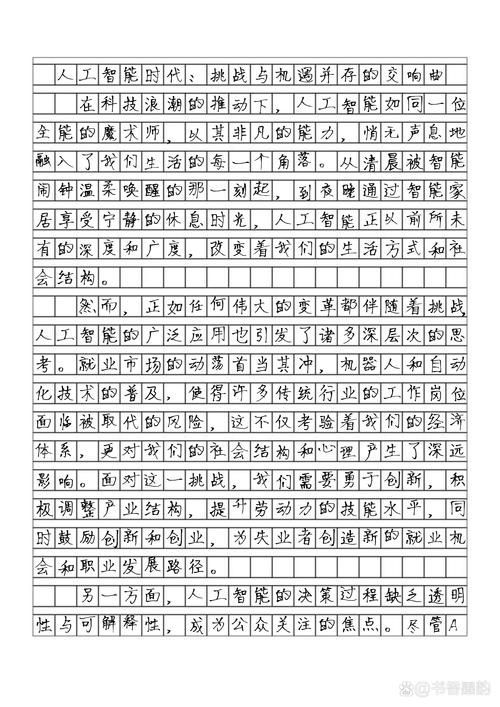 人工智能时代：挑战与机遇并存的交响曲
在科技浪潮的推动下，人工智能如同一位
全能的魔术师，以其非凡的能力，悄无声息地
融入了我们生活的每一个角落。从清晨被智能
闹钟温柔唤醒的那一刻起，到夜晚通过智能家
居享受宁静的休息时光，人工智能正以前所未
有的深度和广度，改变着我们的生活方式和社
会结构。
然而，正如任何伟大的变革都伴随着挑战，
人工智能的广泛应用也引发了诸多深层次的思
考。就业市场的动荡首当其冲，机器人和自动
化技术的普及，使得许多传统行业的工作岗位
面临被取代的风险，这不仅考验着我们的经济
体系，更对我们的社会结构和心理产生了深远
影响。面对这一挑战，我们需要勇于创新，积
极调整产业结构，提升劳动力的技能水平，同
时鼓励创新和创业，为失业者创造新的就业机
会和职业发展路径。
另一方面，人工智能的决策过程缺乏透明
性与可解释性，成为公众关注的焦点。尽管A